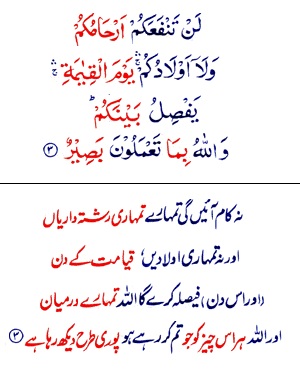 لَنْ تَنْفَعَكُمْ اَرْحَامُكُمْ
وَلَاۤ اَوْلَادُكُمْ ۛۚ یَوْمَ الْقِیٰمَةِ ۛۚ
یَفْصِلُ بَیْنَكُمْ ؕ
وَاللّٰهُ بِمَا تَعْمَلُوْنَ بَصِیْرٌ ۝۳
نہ کام آئیں گی تمہارے تمہاری رشتہ داریاں
اور نہ تمہاری اولادیں، قیامت کے دن
(اور اس دن) فیصلہ کرے گا اللہ تمہارے درمیان
اور اللہ ہر اس چیز کو جو تم کر رہے ہو پوری طرح دیکھ رہا ہے ۝۳